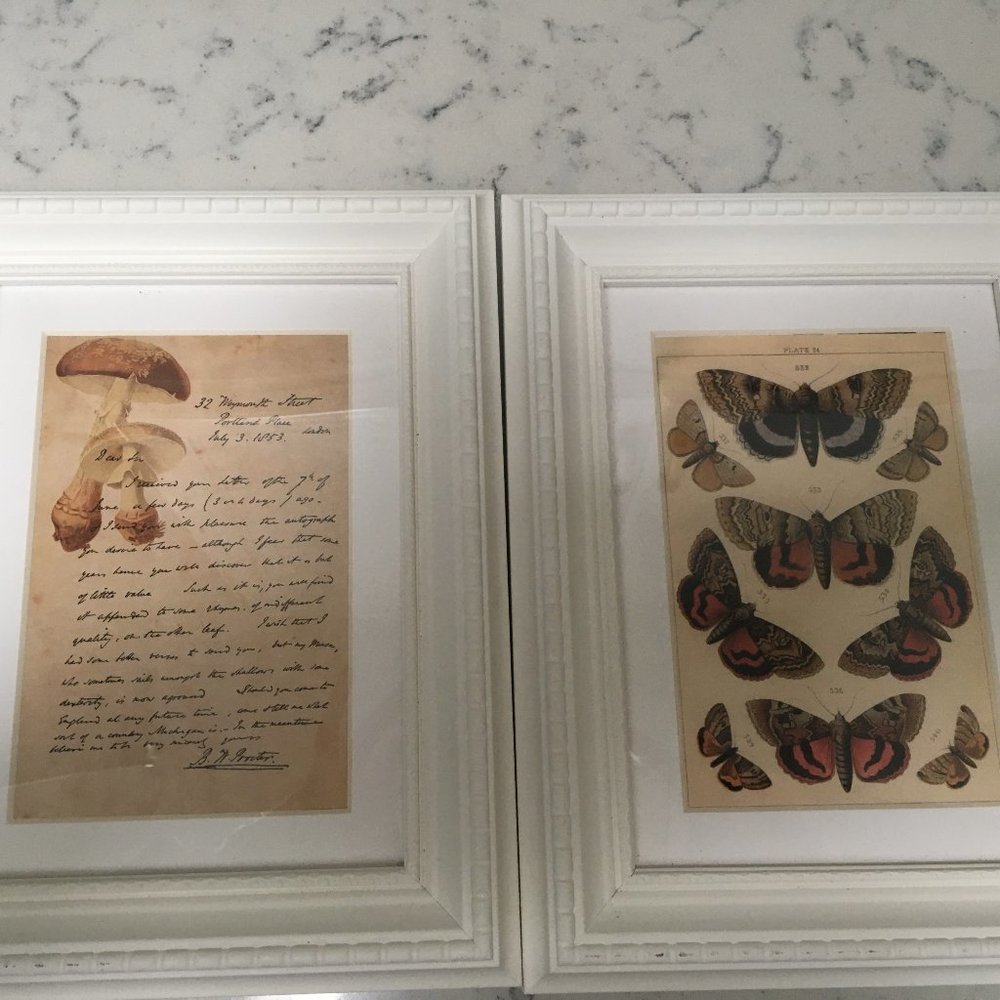 32 Weymouth Street
Portland Place
July 3. 1853. London
Dear Sir
I received your letter of the 7th of
June a few days (3 or 4 days) ago –
& I send you with pleasure the autograph
you desire to have – although I fear that some
years hence you will discover that it is but
of little value Such as it is, you will find
it appended to some rhymes, of indifferent
quality, on the other leaf. I wish that I
had some better verses to send you, but my Muse,
who sometimes sails amongst the shallows with some
dexterity, is now aground Should you come to
England at any future time, come & tell me what
sort of a country Michigan is – In the meantime
believe me to be very sincerely yours
B. W. Procter.
PLATE 24
532
531
533
535
536
539
540